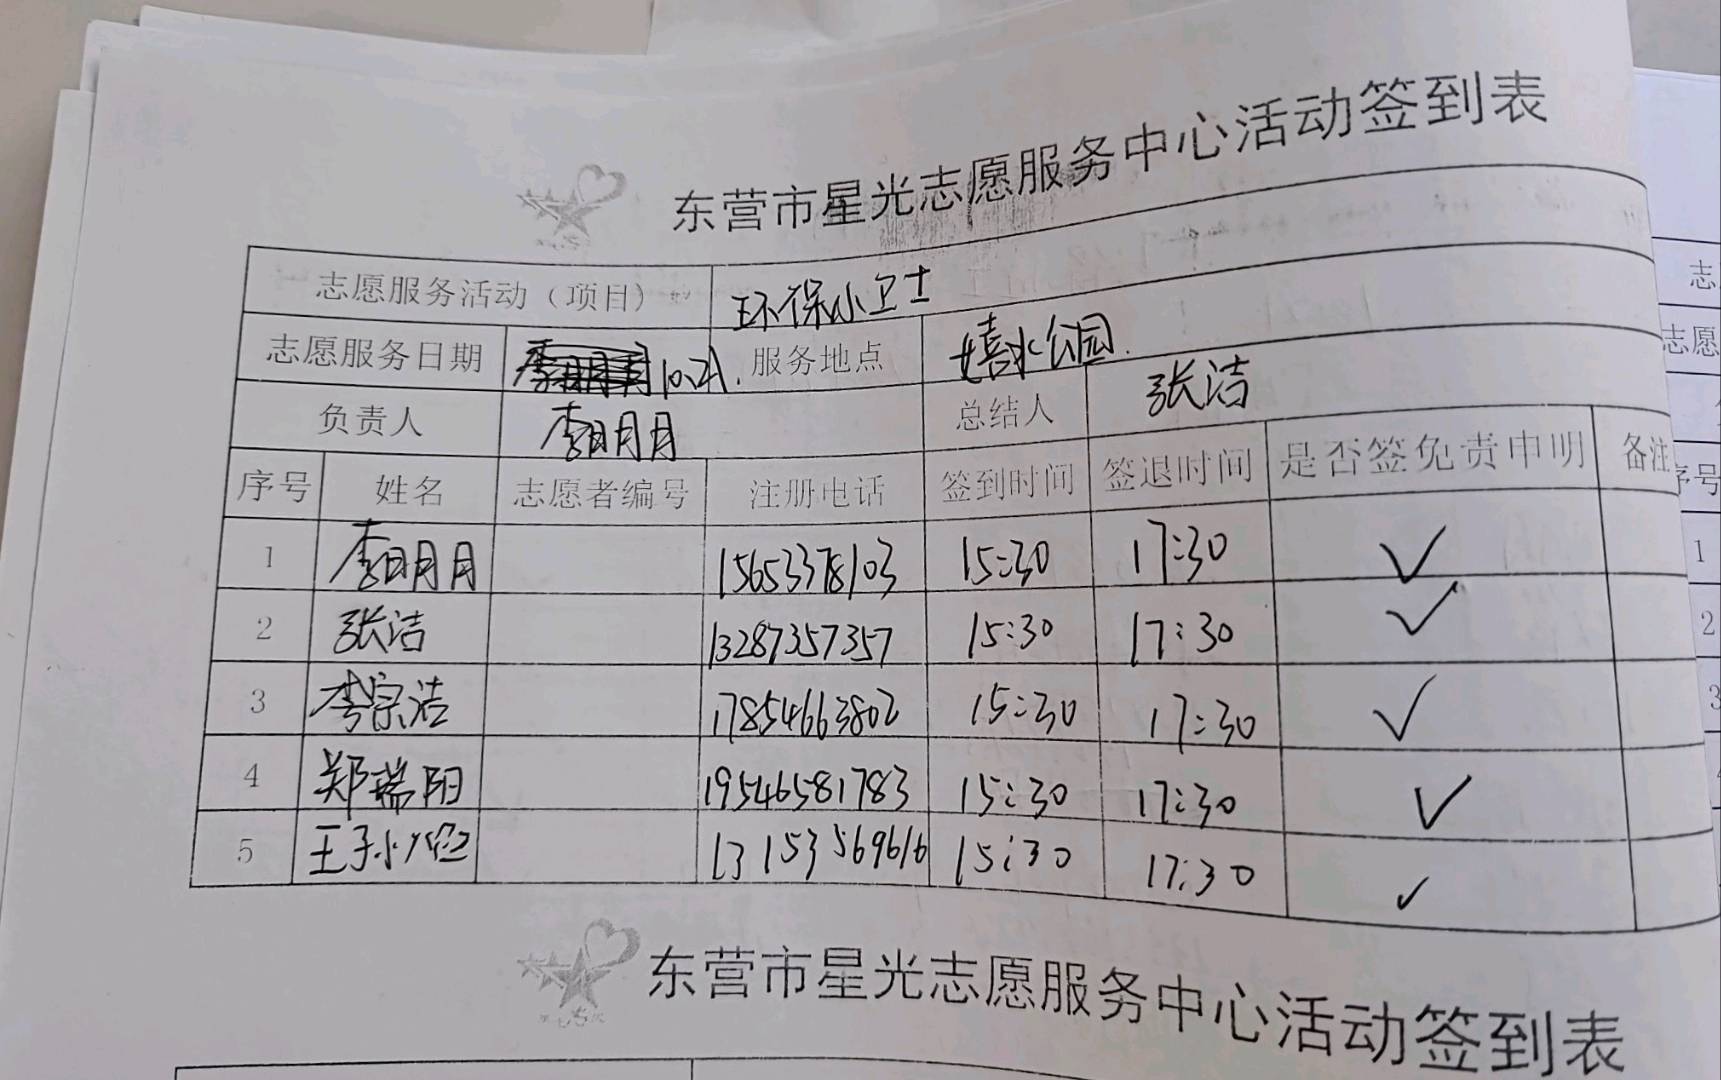 东营市星光志愿服务中心活动签到表
志愿服务活动（项目） 环保小卫士
志愿服务日期 服务地点 嬉水公园
负责人 李明月 总结人 张洁
序号 姓名 志愿者编号 注册电话 签到时间 签退时间 是否签免责申明 备注
1 李明月 15653378103 15:30 17:30 ✓
2 张洁 13287357357 15:30 17:30 ✓
3 李宗洁 17854663802 15:30 17:30 ✓
4 郑瑞阳 19546581783 15:30 17:30 ✓
5 13153569616 15:30 17:30 ✓
东营市星光志愿服务中心活动签到表
志
志愿
序号
1
2
3